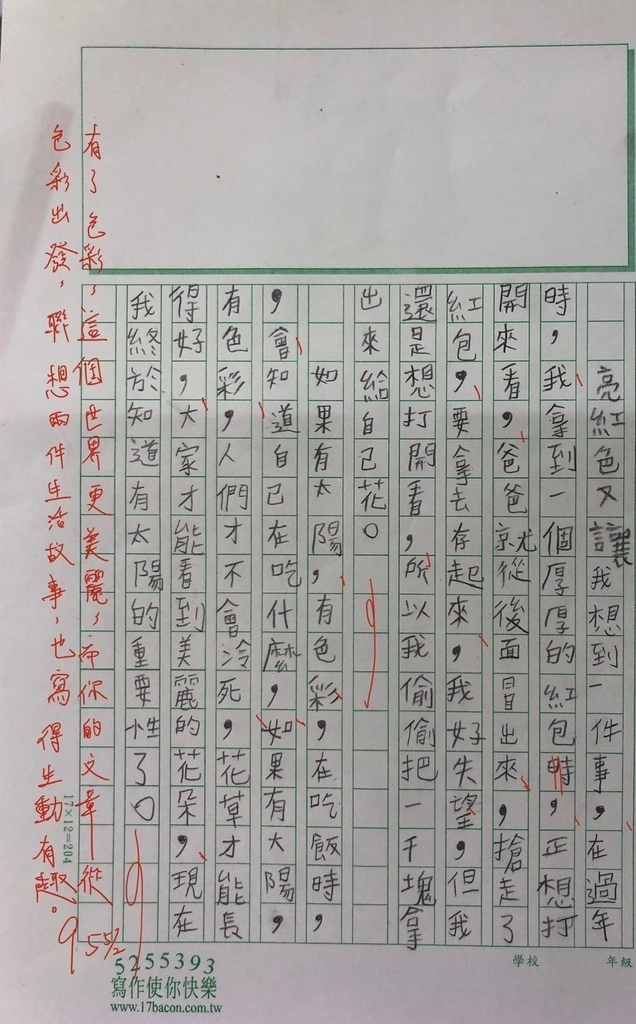 亮紅色又讓我想到一件事，在過年
時，我拿到一個厚厚的紅包時，正想打
開來看，爸爸就從後面冒出來，搶走了
紅包，要拿去存起來，我好失望，但我
還是想打開看，所以我偷偷把一千塊拿
出來給自己花。
如果有太陽，有色彩，在吃飯時，
，會知道自己在吃什麼，如果有太陽，
有色彩，人們才不會冷死，花草才能長
得好，大家才能看到美麗的花朵，現在
我終於知道有太陽的重要性了。
有了色彩，這個世界更美麗，而你的文章從
色彩出發，聯想兩件生活故事，也寫得生動有趣。
95
5/2
17×12=204
5255393
寫作使你快樂
www.17bacon.com.tw
學校
年級